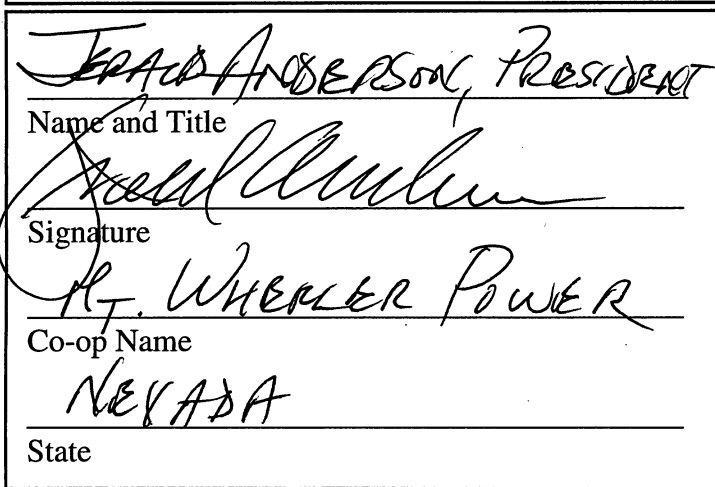 Jerald Anderson, President
Name and Title
Signature
Mt. Wheeler Power
Co-op Name
Nevada
State